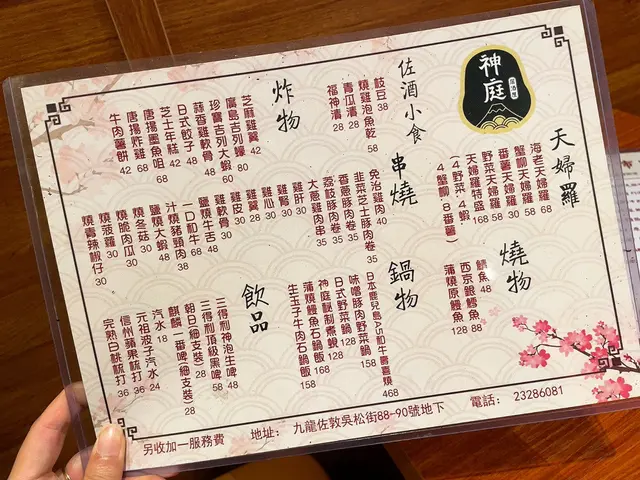 神庭
居酒屋
天婦羅
海老天婦羅 68
蟹柳天婦羅 58
番薯天婦羅 30
野菜天婦羅 58
天婦羅特盛 168
(4野菜、4蝦
4蟹柳、8番薯)
燒物
鯖魚 48
西京銀鱈魚 88
蒲燒原鰻魚 128
佐酒小食
枝豆 38
燒雞泡魚乾 58
青瓜漬 28
福神漬 28
串燒
免治雞肉 40
韮菜芝士豚肉卷 35
香蔥豚肉卷 35
荔枝豚肉卷 35
大蔥雞肉串 35
雞肝 30
雞腎 30
雞心 30
雞翼 28
雞皮 28
雞軟骨 30
鹽燒牛舌 48
一口和牛 68
汁燒豬頸肉 38
鹽燒大蝦 48
燒冬菇 30
燒脆肉瓜 30
燒菠蘿 30
燒青辣椒仔 30
鍋物
日本鹿兒島A5和牛壽喜燒 468
味噌豚肉野菜鍋 158
日式野菜鍋 128
神庭秘制煮蜆 128
蒲燒鰻魚石鍋飯 168
生玉子牛肉石鍋飯 158
炸物
芝麻雞翼 42
廣島吉列蠔 80
珍寶吉列大蝦 60
蒜香雞軟骨 48
日式餃子 48
芝士年糕 42
唐揚墨魚咀 68
唐揚炸雞 68
牛肉薯餅 42
飲品
三得利神泡生啤 48
三得利頂級黑啤 58
朝日(細支裝) 28
麒麟一番啤(細支裝) 28
汽水 18
元祖波子汽水 24
信州蘋果梳打 36
完熟白桃梳打 36
另收加一服務費
地址: 九龍佐敦吳松街88-90號地下
電話: 23286081